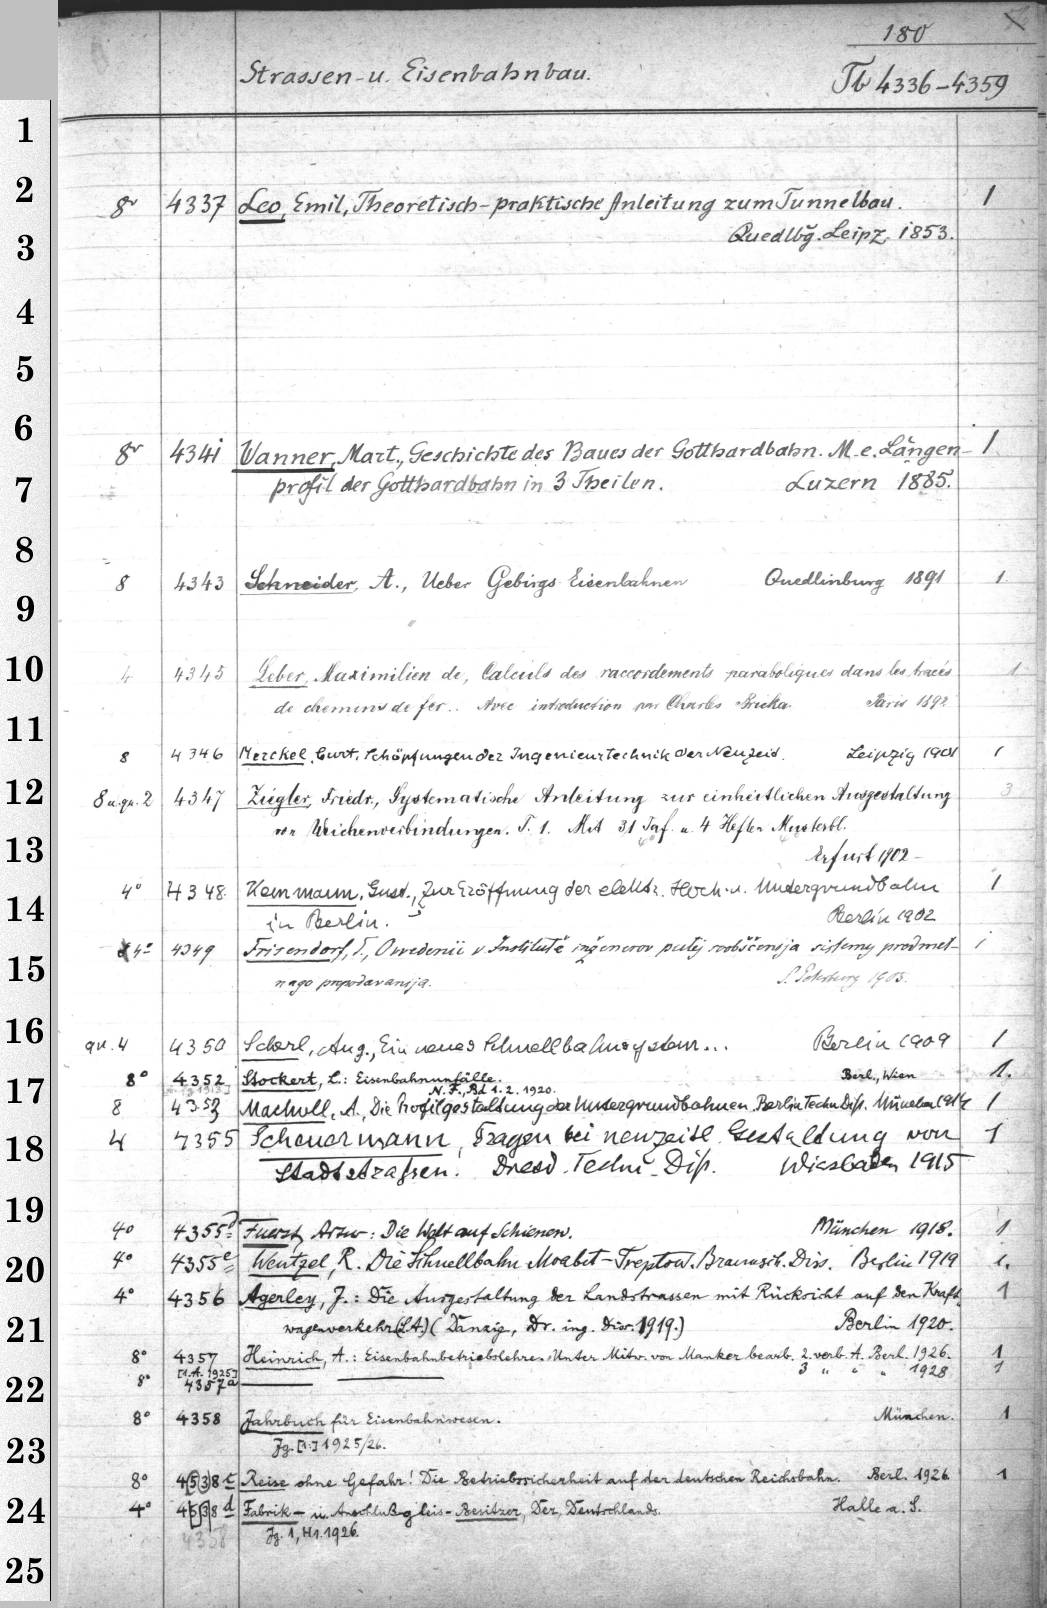 180
Strassen- u. Eisenbahnbau. Tb 4336-4359
1
2
8° 4337 Leo, Emil, Theoretisch-praktische Anleitung zum Tunnelbau. 1
3
Quedlbg. Leipz. 1853.
4
5
6
8° 4341 Wanner, Mart., Geschichte des Baues der Gotthardbahn. M. e. Längen- 1
7
profil der Gotthardbahn in 3 Theilen. Luzern 1885.
8
8 4343 Schneider, A., Ueber Gebirgs-Eisenbahnen Quedlinburg 1891 1
9
10
4 4345 Leber, Maximilien de, Calculs des raccordements paraboliques dans les tracés 1
de chemins de fer.. Avec introduction par Charles Bricka. Paris 1892
11
8 4346 Merckel, Curt, Schöpfungen der Ingenieurtechnik der Neuzeit. Leipzig 1901 1
12
8 u. qu. 2 4347 Ziegler, Friedr., Systematische Anleitung zur einheitlichen Ausgestaltung 3
von Weichenverbindungen. T. 1. Mit 31 Taf. u. 4 Heften Musterbl.
13
Erfurt 1902
4° 4348 Kemmann, Gust., Zur Eröffnung der elektr. Hoch- u. Untergrundbahn 1
14
in Berlin. Berlin 1902
4° 4349 Frisendorf, I., O vvedenii v Institutě inženerov putej soobščenija sistemy predmet- 1
15
nago prepodavanija. S. Petersburg 1903.
16
qu. 4 4350 Scherl, Aug., Ein neues Schnellbahnsystem... Berlin 1909 1
17
8° 4352 Stockert, L.: Eisenbahnunfälle. Berl., Wien 1.
N.F., Bd 1. 2. 1920.
8 4353 Macholl, A., Die Profilgestaltung der Untergrundbahnen. Berlin Techn Diss. München 1914 1
18
4 4355 Scheuermann, Fragen bei neuzeitl. Gestaltung von 1
Stadtstraßen. Dresd. Techn. Diss. Wiesbaden 1915
19
4° 4355 Fuerst, Artur: Die Welt auf Schienen. München 1918. 1
20
4° 4355e Wentzel, R. Die Schnellbahn Moabit-Treptow. Braunsch. Diss. Berlin 1919 1.
4° 4356 Agerley, J.: Die Ausgestaltung der Landstrassen mit Rücksicht auf den Kraft- 1
21
wagenverkehr (L.A.) (Danzig, Dr. ing. Diss. 1919.) Berlin 1920.
8° 4357 Heinrich, A.: Eisenbahnbetriebslehre. Unter Mitw. von Manker bearb. 2. verb. A. Berl. 1926. 1
[1. A. 1925] 3 " " " 1928 1
22
8° 4357a
8° 4358 Jahrbuch für Eisenbahnwesen. München. 1
23
Jg. [1:] 1925/26.
8° 4538c Reise ohne Gefahr! Die Betriebssicherheit auf der deutschen Reichsbahn. Berl. 1926 1
24
4° 4538d Fabrik- u. Anschlußgleis-Besitzer, Der, Deutschlands. Halle a. S.
4358 Jg. 1, H 1. 1926.
25